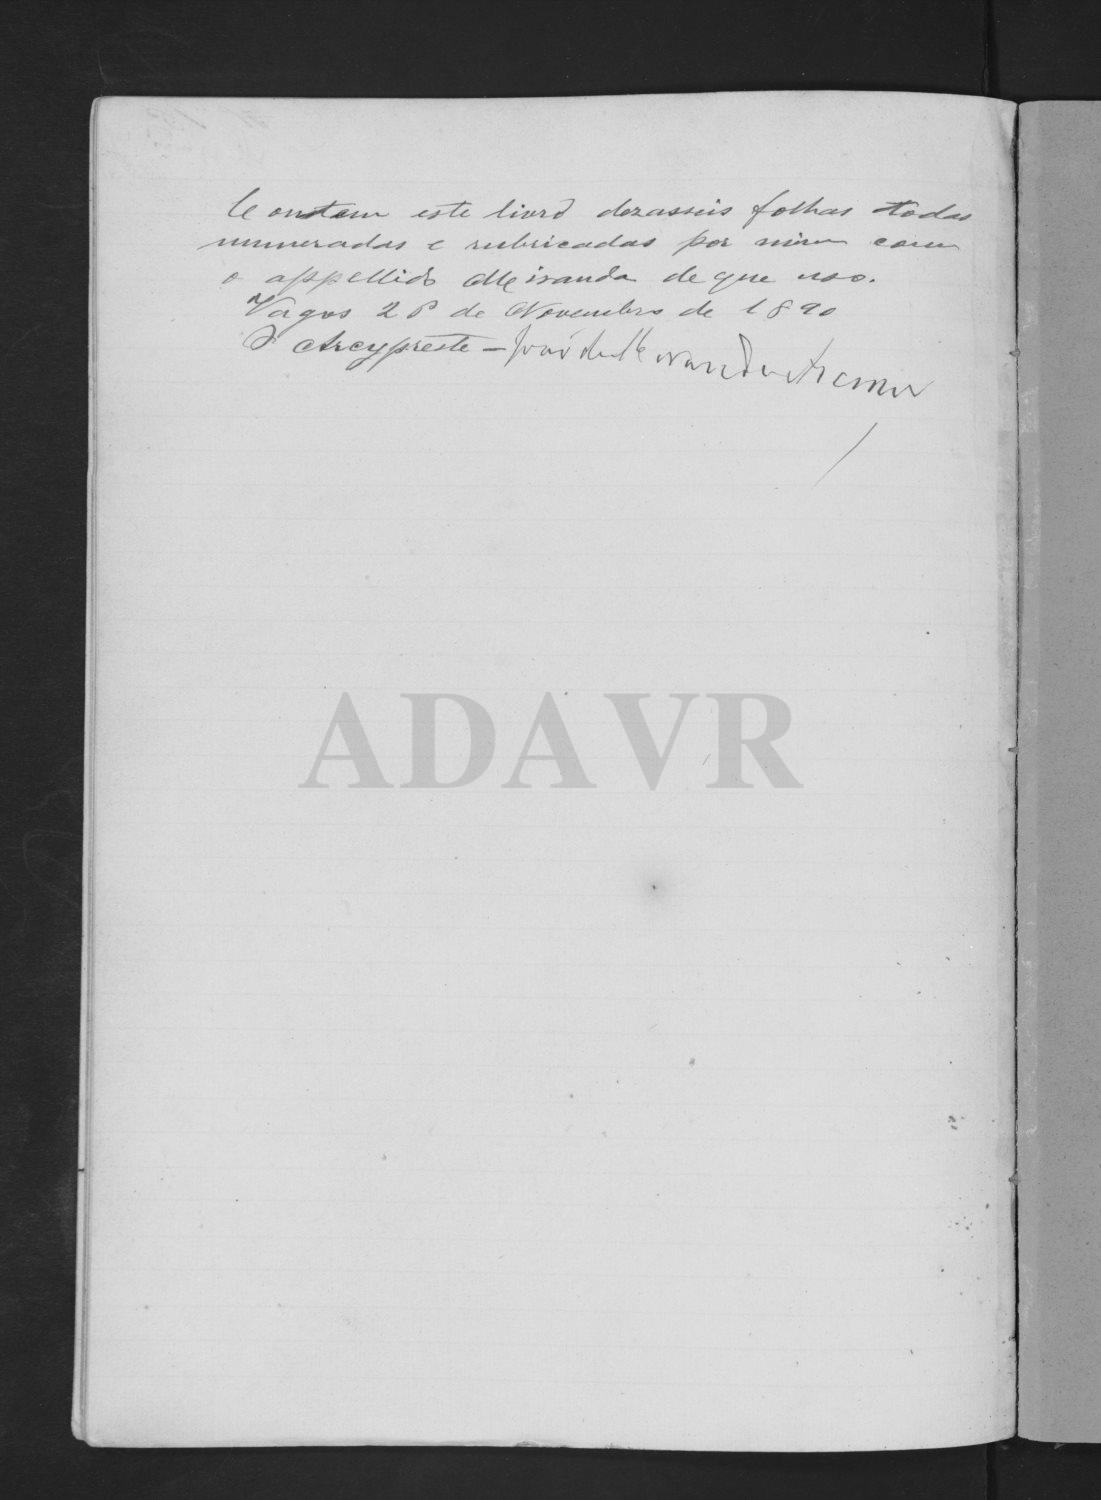 Contem este livro dezasseis folhas todas
numeradas e rubricadas por mim com
o appellido Miranda de que uso.
Vagos 28 de Novembro de 1890
O Arcypreste - João de Miranda
ADAVR